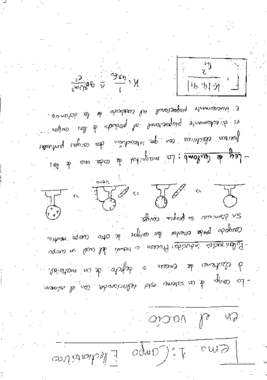 Tema 1: Campo Electrostático
en el vacío
- La carga de un sistema está relacionada con el número
de electrones de exceso o defecto de un material.
Proceso a través del cual un cuerpo
cargado puede crear cargas en otro cuerpo neutro
sin disminuir su propia carga.
- Ley de Coulomb: La magnitud de cada una de las
fuerzas eléctricas con que interactúan dos cargas puntuales
es directamente proporcional al producto de las cargas
e inversamente proporcional al cuadrado de la distancia.